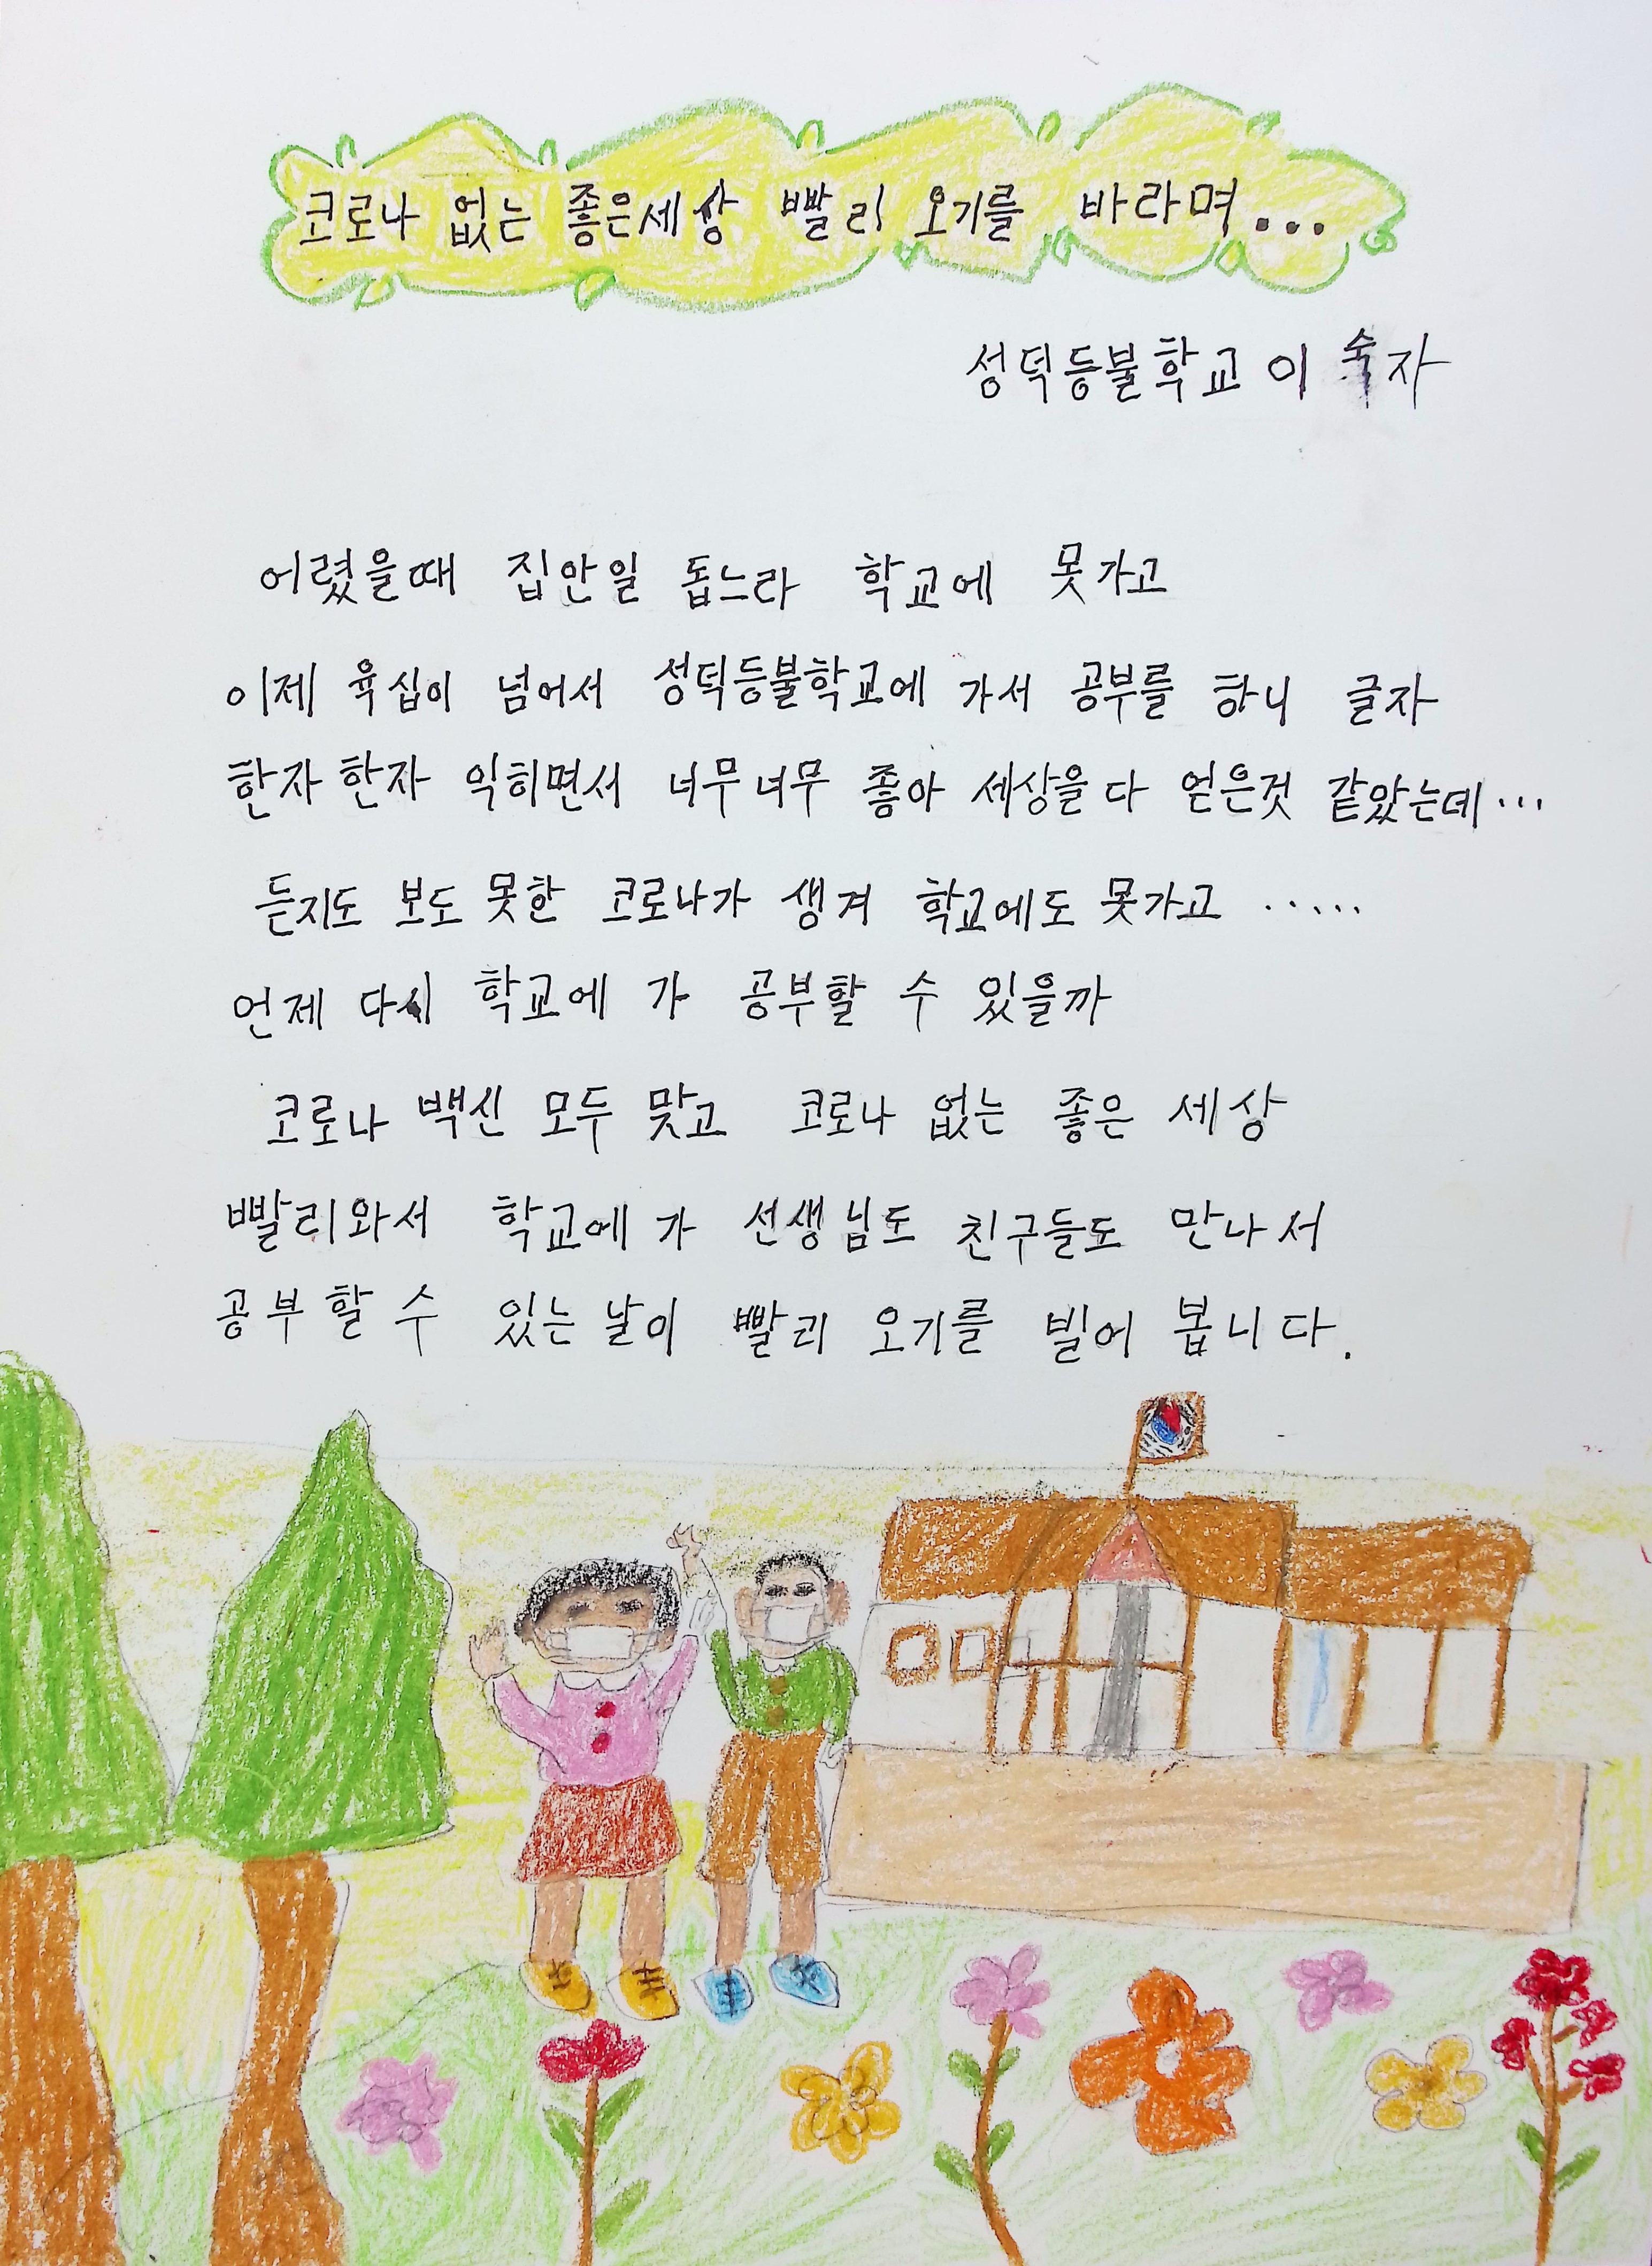 코로나 없는 좋은세상 빨리 오기를 바라며...
성덕등불학교 이숙자
어렸을때 집안일 돕느라 학교에 못가고
이제 육십이 넘어서 성덕등불학교에 가서 공부를 하니 글자
한자 한자 익히면서 너무너무 좋아 세상을 다 얻은것 같았는데...
듣지도 보도 못한 코로나가 생겨 학교에도 못가고 .....
언제 다시 학교에 가 공부할 수 있을까
코로나 백신 모두 맞고 코로나 없는 좋은 세상
빨리와서 학교에 가 선생님도 친구들도 만나서
공부할 수 있는 날이 빨리 오기를 빌어 봅니다.